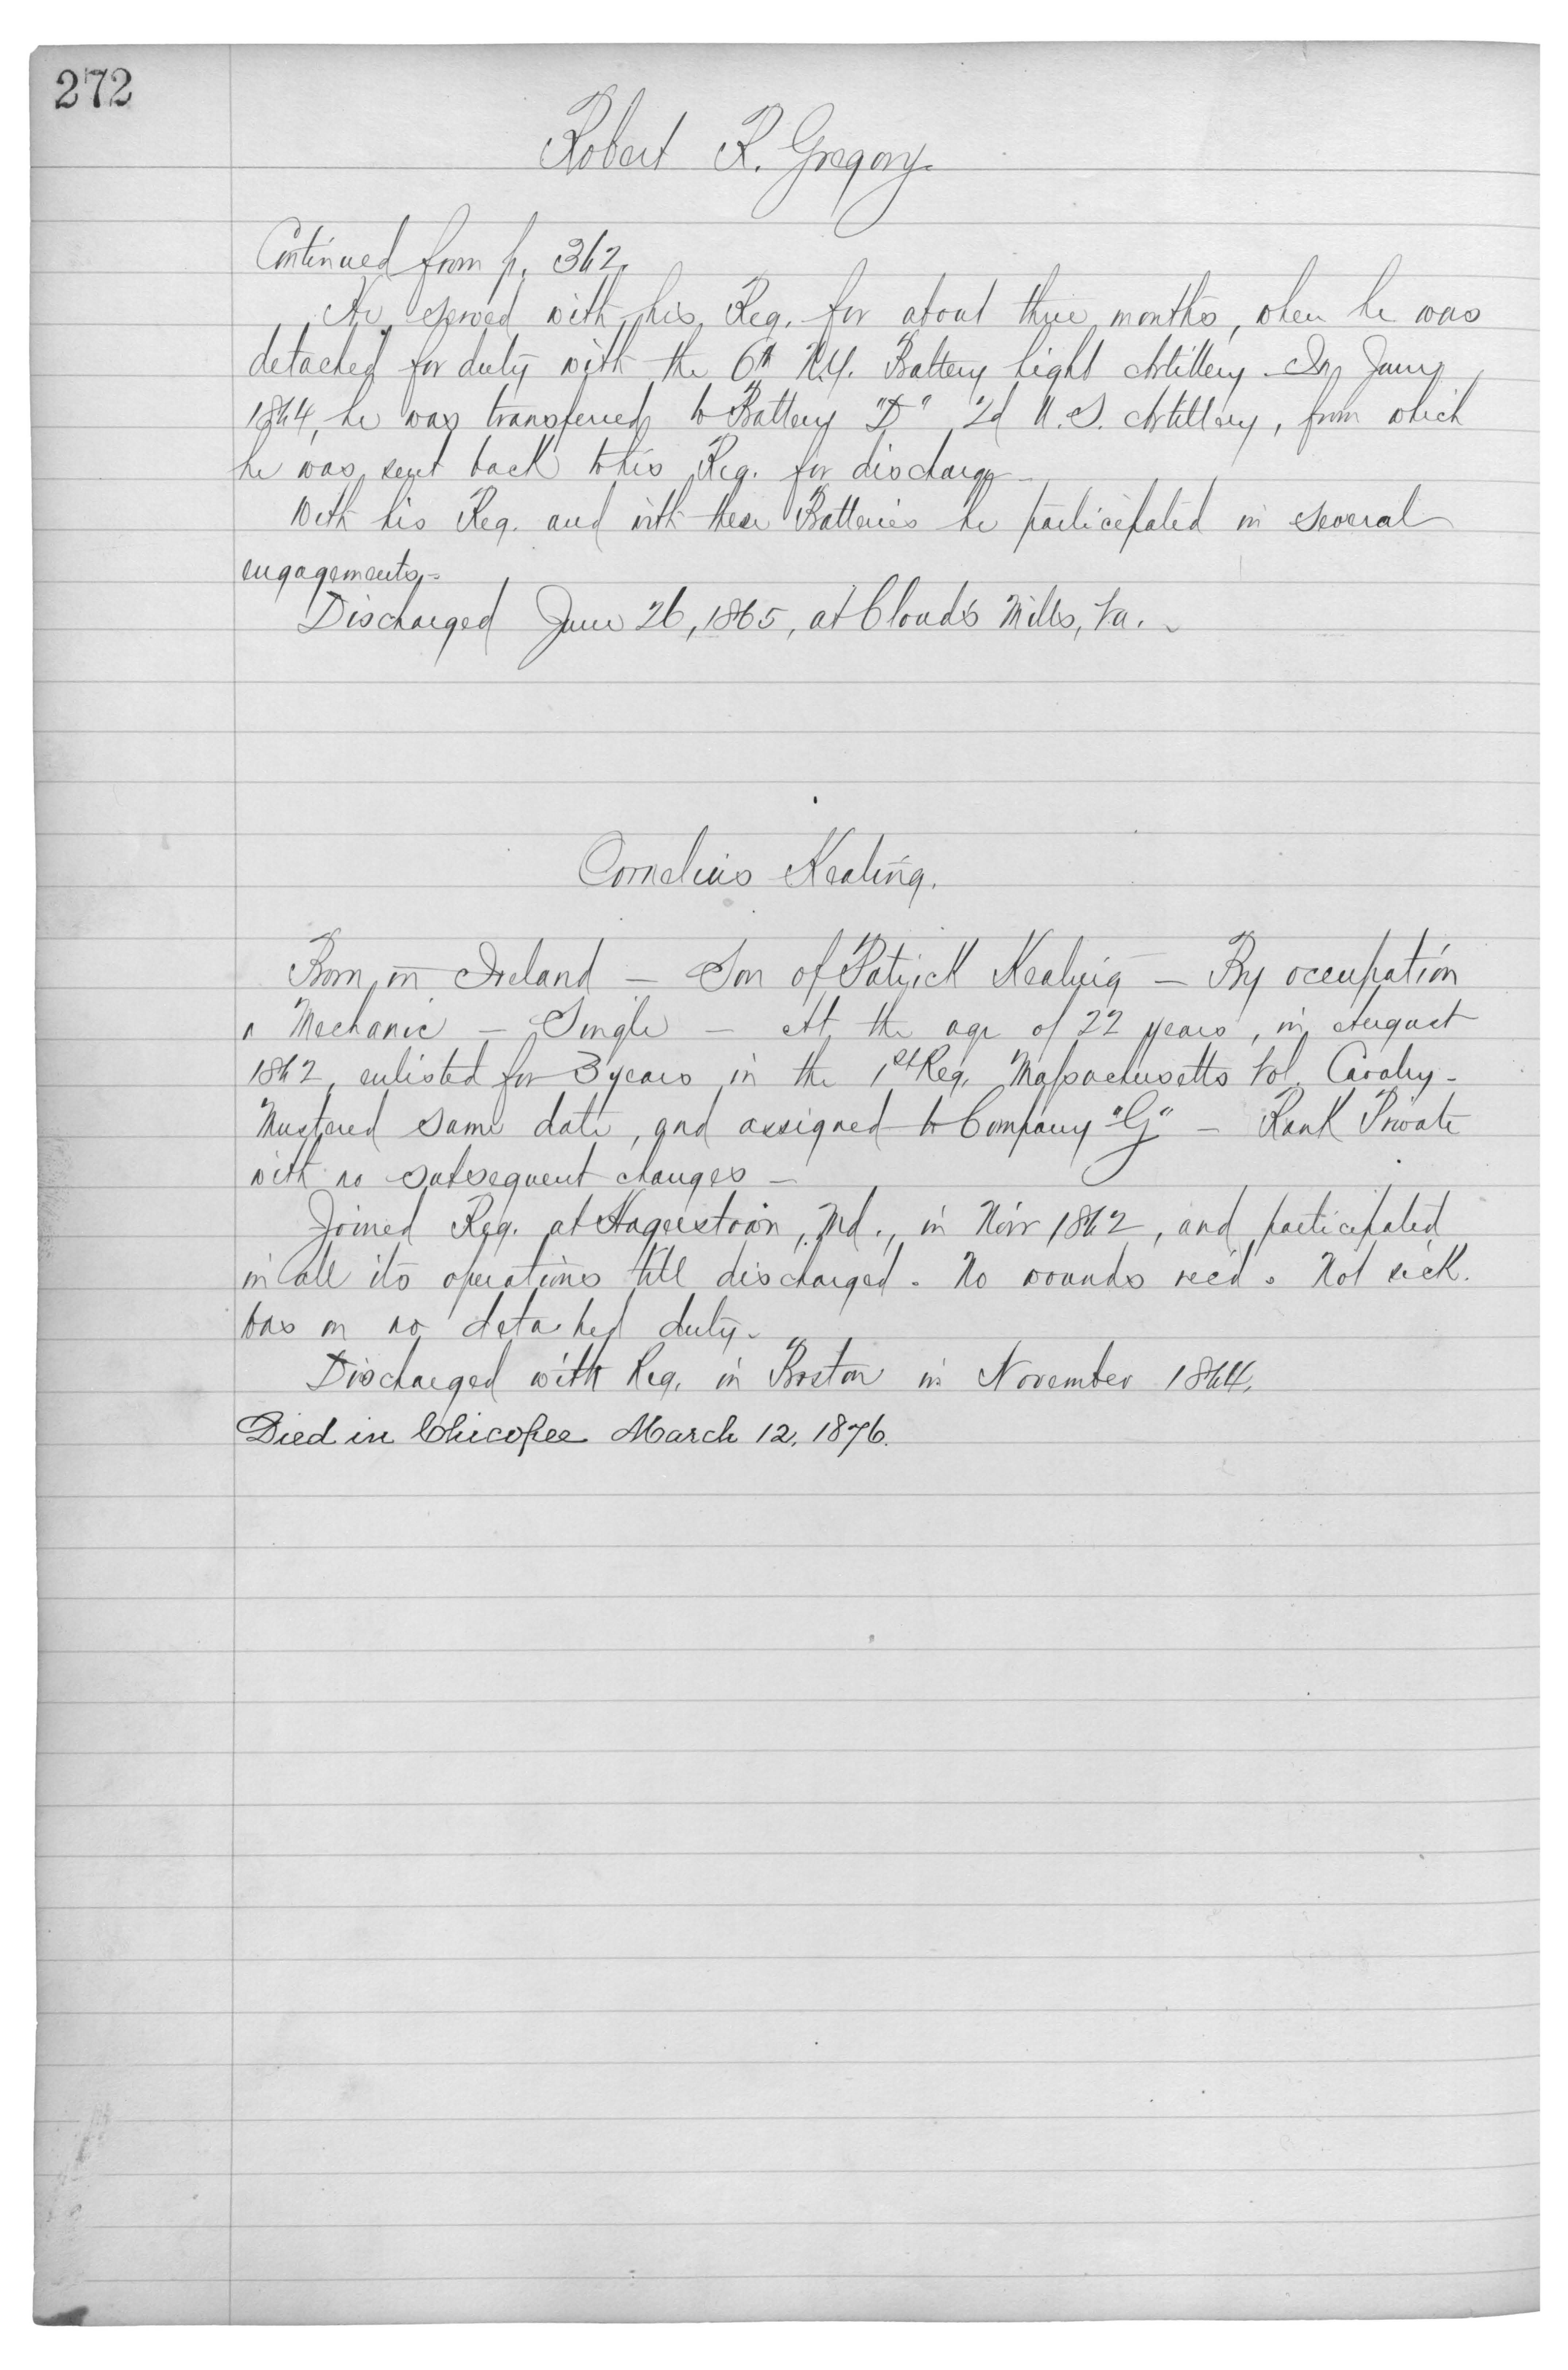 272
Robert R. Gregory.
Continued from p. 362.
He served with his Reg. for about three months, when he was
detached for duty with the 6th N.Y. Battery Light Artillery. In Jany
1864, he was transferred to Battery "D" 2d U.S. Artillery, from which
he was sent back to his Reg. for discharge -
With his Reg. and with these Batteries he participated in several
engagements. -
Discharged June 26, 1865, at Cloud's Mills, Va. -
Cornelius Kealing.
Born in Ireland - Son of Patrick Kealing - By occupation
a Mechanic - Single - At the age of 22 years, in August
1862, enlisted for 3 years in the 1st Reg. Massachusetts Vol. Cavalry -
Mustered same date, and assigned to Company "G" - Rank Private
with no subsequent changes -
Joined Reg. at Hagerstown, Md., in Novr 1862, and participated
in all its operations till discharged. No wounds rec'd. Not sick.
Was on no detached duty.
Discharged with Reg. in Boston in November 1864.
Died in Chicopee March 12, 1876.